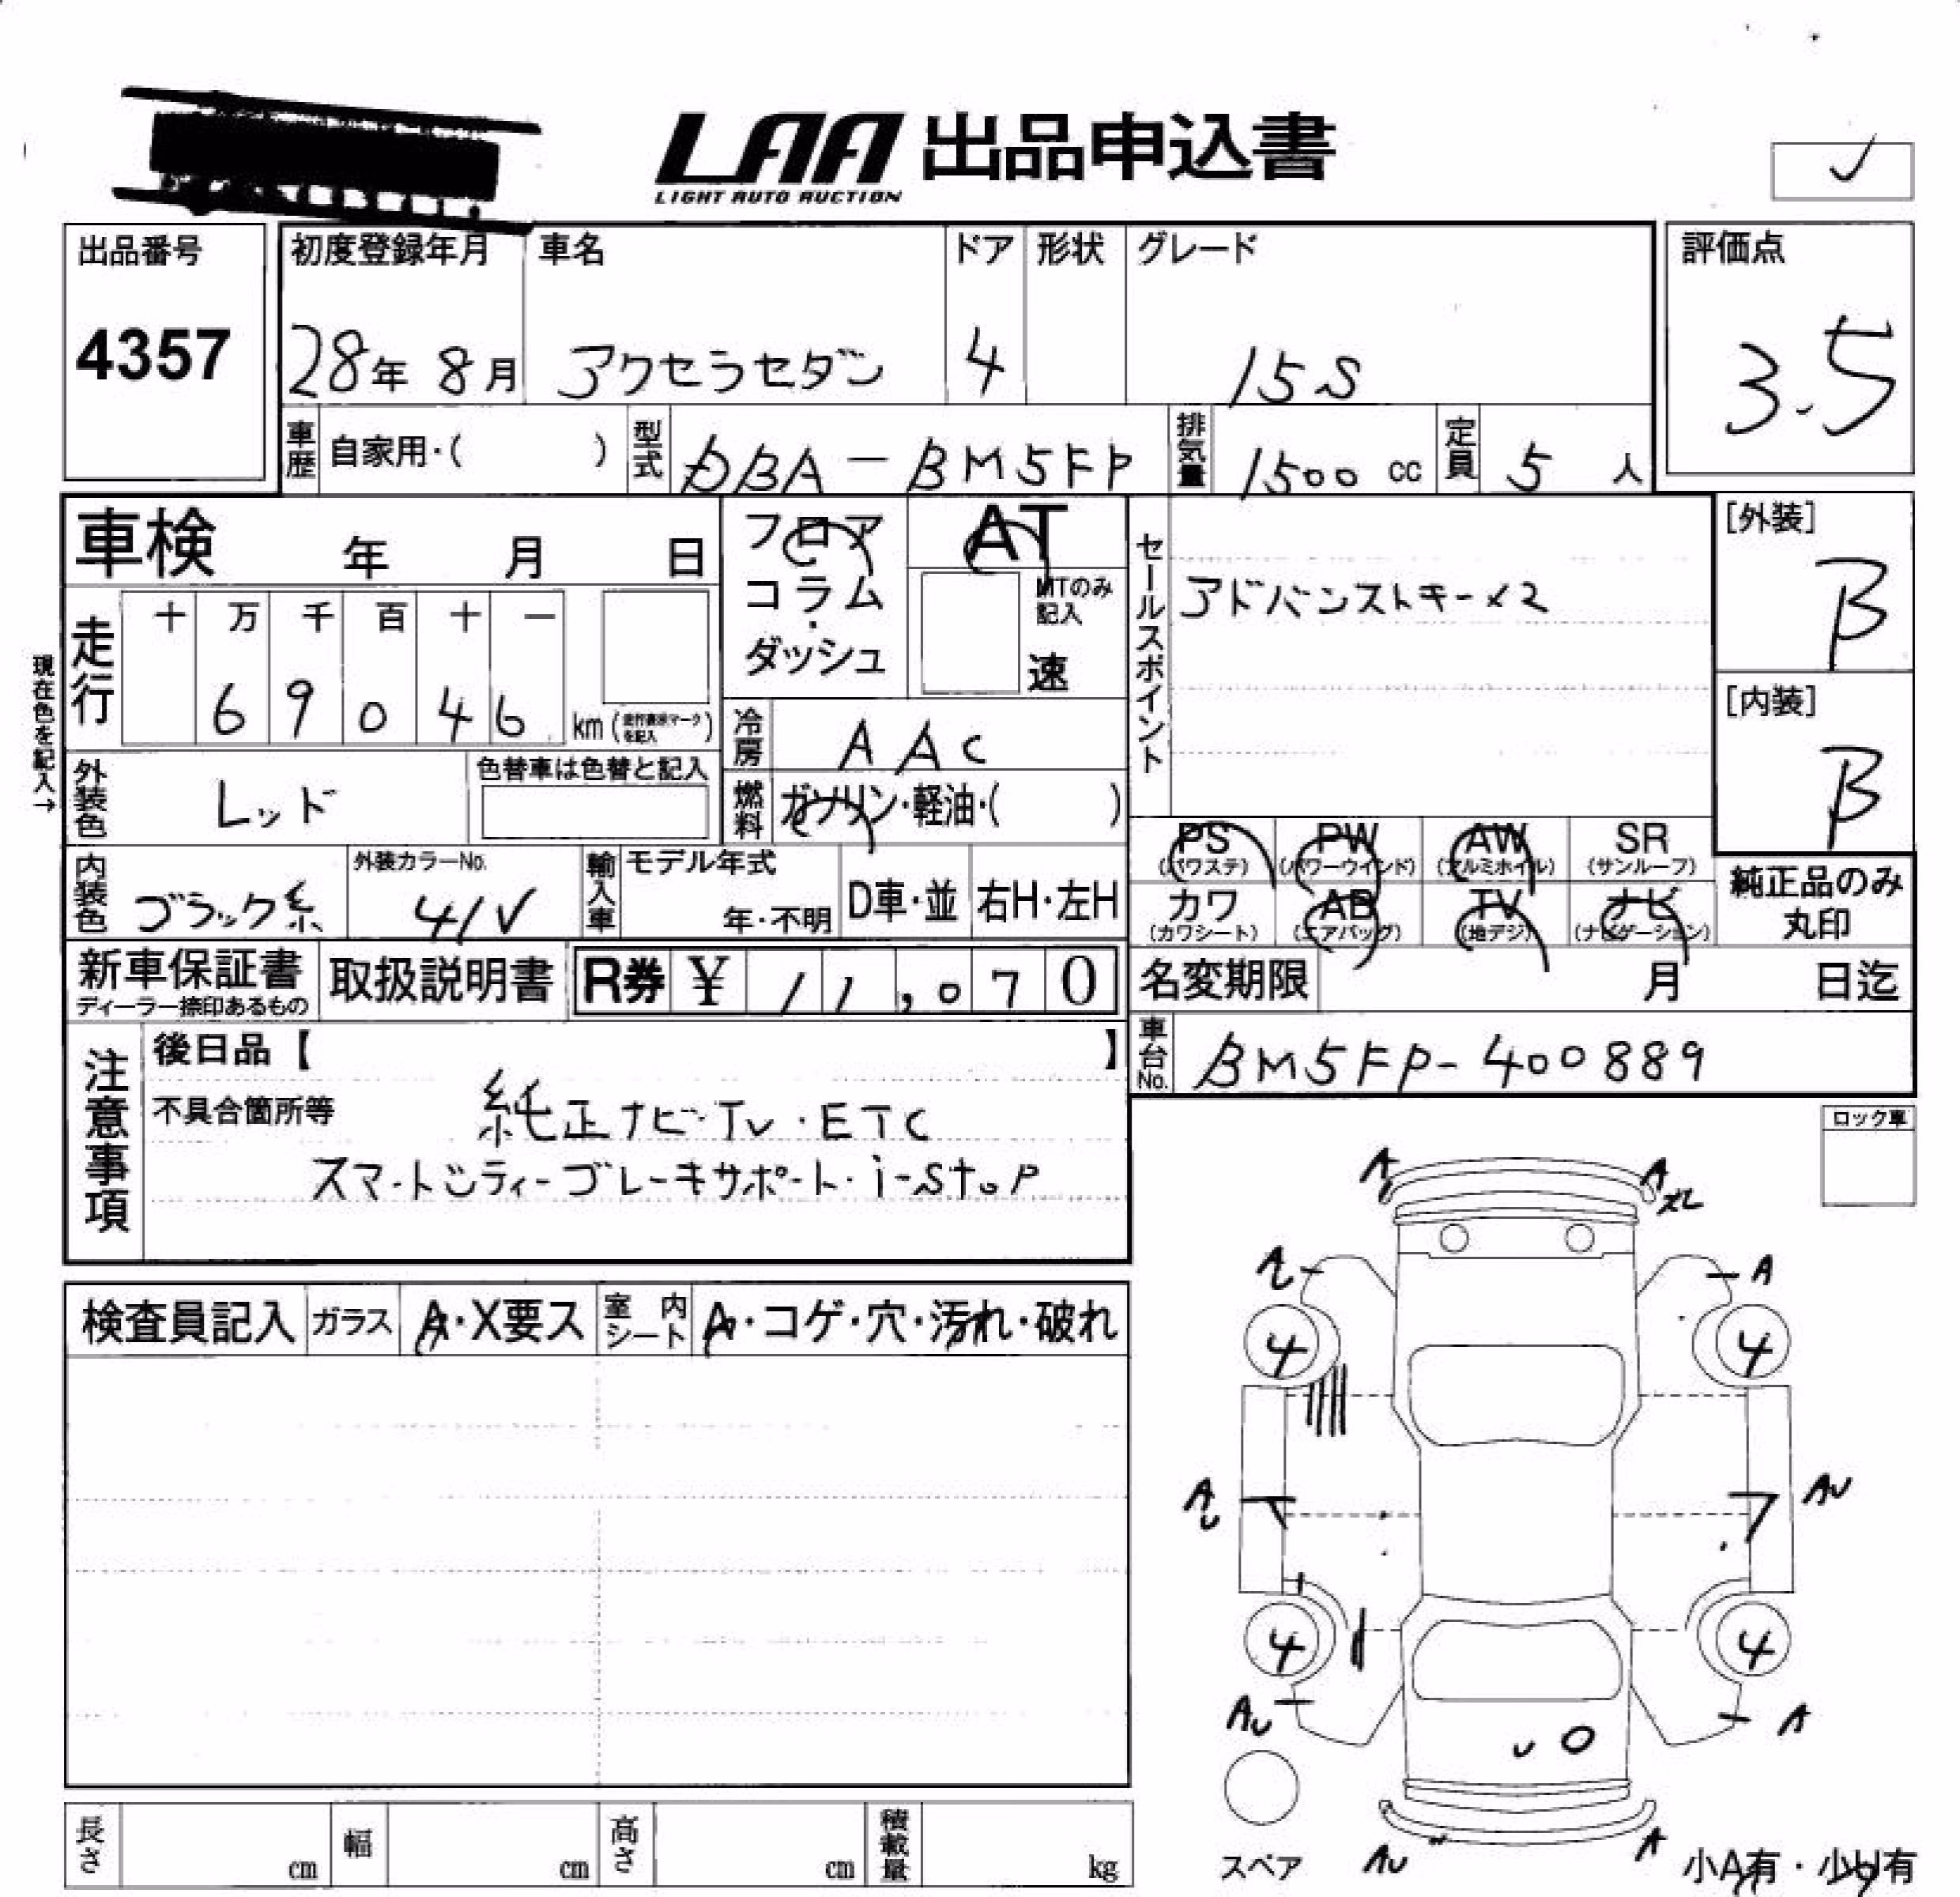 LAA 出品申込書
LIGHT AUTO AUCTION
✓
出品番号 初度登録年月 車名 ドア 形状 グレード 評価点
4357 28年 8月 アクセラセダン 4 15S 3.5
車歴 自家用・( ) 型式 DBA-BM5FP 排気量 1500 cc 定員 5 人
車検 年 月 日
フロア・コラム・ダッシュ
AT
MTのみ記入
速
セールスポイント
アドバンストキー×2
[外装]
B
[内装]
B
現在色を記入→
走行 十 万 千 百 十 一
6 9 0 4 6 km
冷房 AAC
外装色 レッド 色替車は色替と記入
燃料 ガソリン・軽油・( )
PS (パワステ) PW (パワーウインド) AW (アルミホイル) SR (サンルーフ)
カワ (カワシート) AB (エアバッグ) TV (地デジ) ナビ (ナビゲーション)
純正品のみ丸印
内装色 ブラック系 外装カラーNo. 41V 輸入車 モデル年式 年・不明 D車・並 右H・左H
新車保証書 ディーラー捺印あるもの 取扱説明書 R券 ¥ 11,070
名変期限 月 日迄
車台No. BM5FP-400889
注意事項
後日品【 】
不具合箇所等 純正ナビ・TV・ETC
スマートシティーブレーキサポート・i-stop
ロック車
検査員記入 ガラス A・X要ス 室内シート A・コゲ・穴・汚れ・破れ
A A
A
4 4
AU AU
4 4
AU A
U
スペア AU A 小A有・小U有
長さ cm 幅 cm 高さ cm 積載量 kg